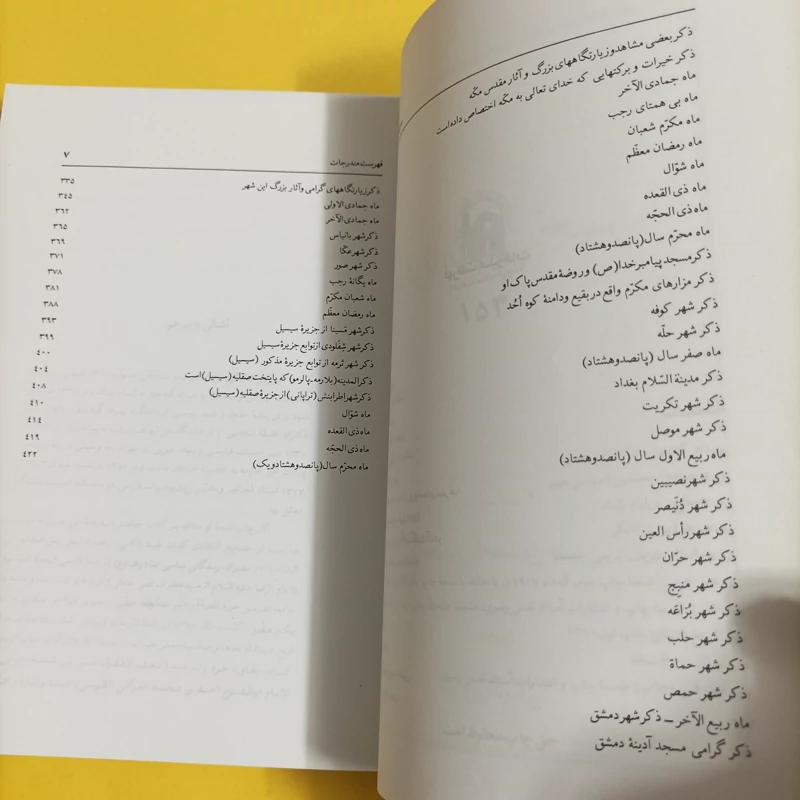 ذکر بعضی مشاهد و زیارتگاههای بزرگ و آثار مقدس مکّه
ذکر خیرات و برکتهایی که خدای تعالی به مکّه اختصاص داده است
ماه جمادی الآخر
ماه بی همتای رجب
ماه مکرّم شعبان
ماه رمضان معظّم
ماه شوّال
ماه ذی القعده
ماه ذی الحجّه
ماه محرّم سال (پانصد و هشتاد)
ذکر مسجد پیامبر خدا (ص) و روضهٔ مقدس پاک او
ذکر مزارهای مکرّم واقع در بقیع و دامنهٔ کوه اُحُد
ذکر شهر کوفه
ذکر شهر حلّه
ماه صفر سال (پانصد و هشتاد)
ذکر مدینة السّلام بغداد
ذکر شهر تکریت
ذکر شهر موصل
ماه ربیع الاول سال (پانصد و هشتاد)
ذکر شهر نصیبین
ذکر شهر دُنَیصر
ذکر شهر رأس العین
ذکر شهر حرّان
ذکر شهر منبج
ذکر شهر بُزاعَه
ذکر شهر حلب
ذکر شهر حماة
ذکر شهر حمص
ماه ربیع الآخر – ذکر شهر دمشق
ذکر گرامی مسجد آدینهٔ دمشق
فهرست مندرجات ۷
ذکر زیارتگاههای گرامی و آثار بزرگ این شهر ۳۳۵
ماه جمادی الاولی ۳۴۵
ماه جمادی الآخر ۳۶۲
ذکر شهر بانیاس ۳۶۵
ذکر شهر عکّا ۳۶۹
ذکر شهر صور ۳۷۱
ماه یگانهٔ رجب ۳۷۸
ماه شعبان مکرّم ۳۸۱
ماه رمضان معظّم ۳۸۸
ذکر شهر مَسینا از جزیرهٔ سیسیل ۳۹۳
ذکر شهر شِفْلودی از توابع جزیرهٔ سیسیل ۳۹۹
ذکر شهر ثرمه از توابع جزیرهٔ مذکور (سیسیل) ۴۰۰
ذکر المدینه (بلارمه-پالرمو) که پایتخت صقلیه (سیسیل) است ۴۰۴
ذکر شهر اطرابنش (تراپانی) از جزیرهٔ صقلیه (سیسیل) ۴۰۸
ماه شوّال ۴۱۰
ماه ذی القعده ۴۱۴
ماه ذی الحجّه ۴۱۹
ماه محرّم سال (پانصد و هشتاد و یک) ۴۲۲